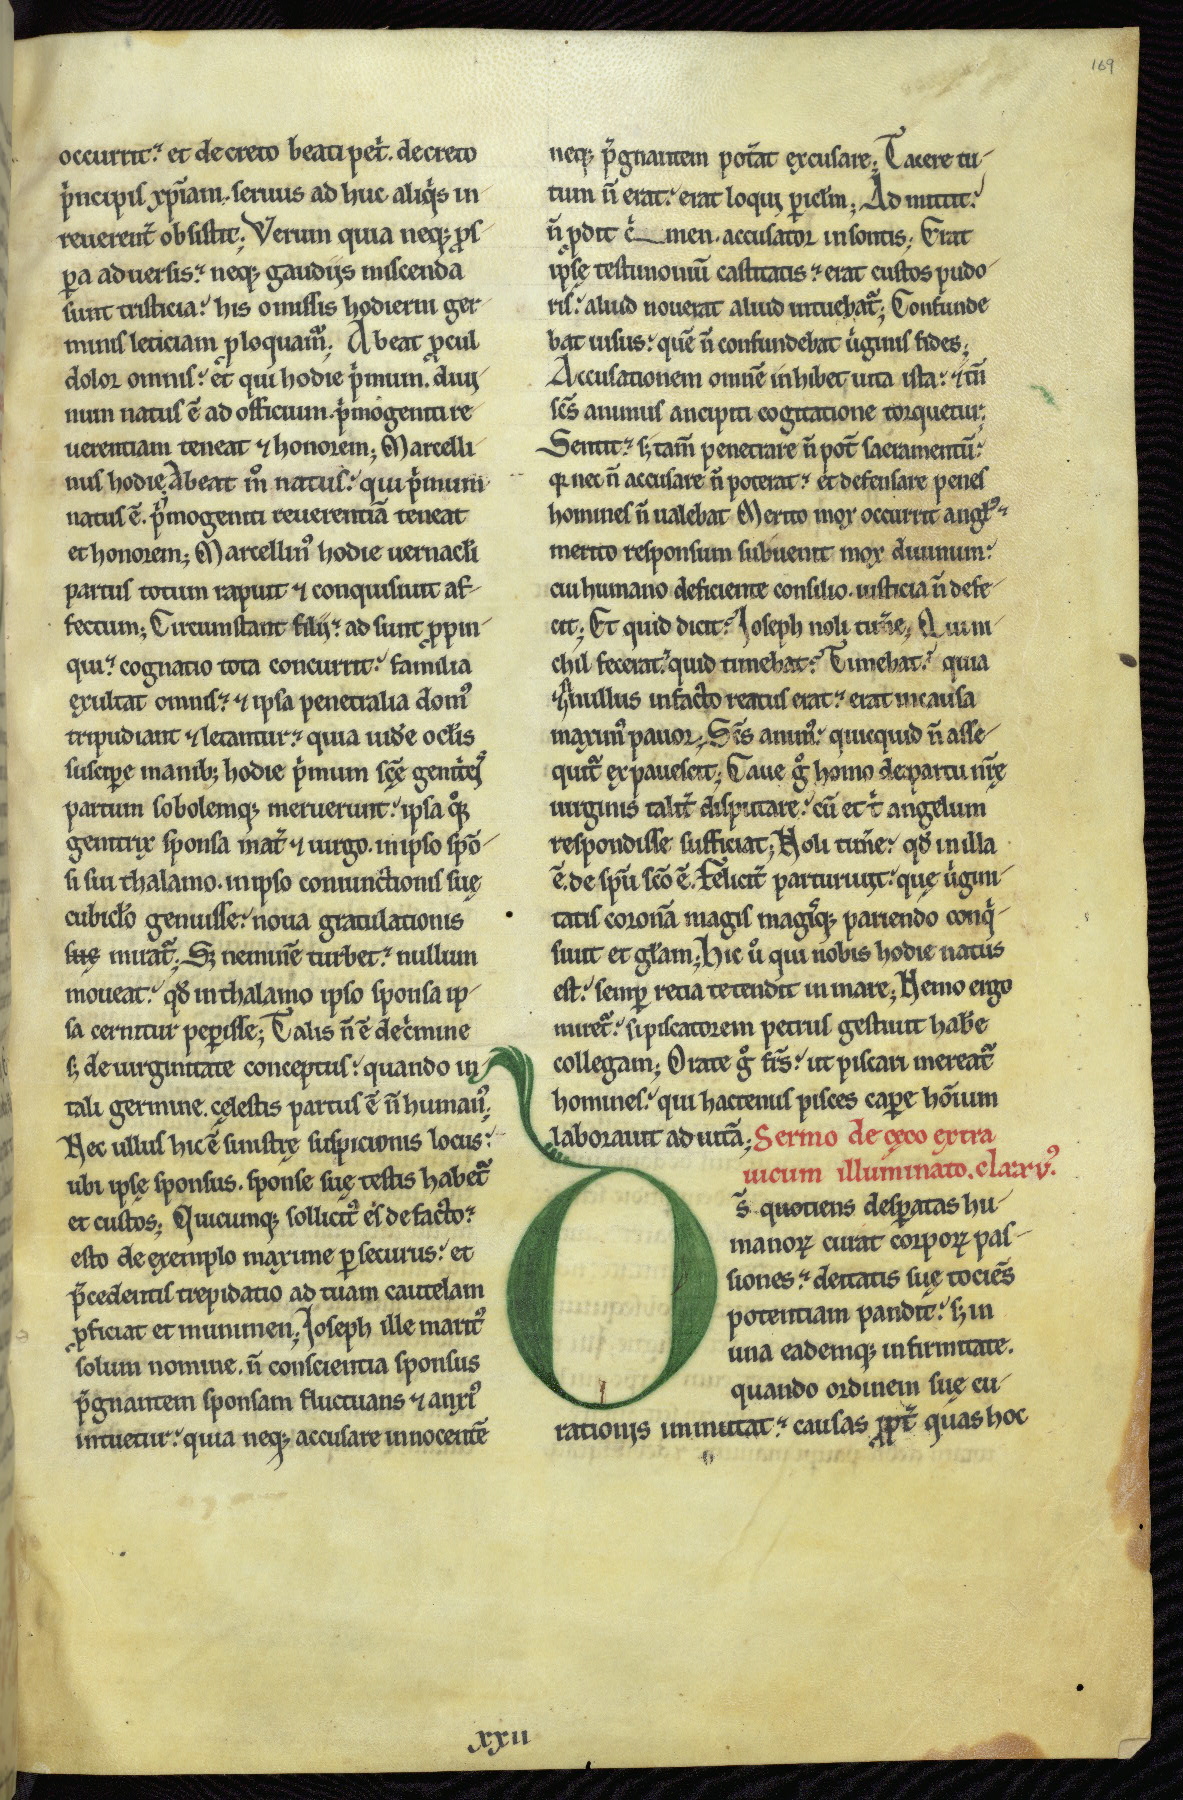 169
occurrit. et decreto beati pet̄. decreto
p̍ncipis xp̄iam. seruus ad huc aliq̍s in-
reuerent̄ obsistit; Verum quia neq; ꝓs
ꝑa aduersis. neq; gaudijs miscenda
sunt tristicia. his omissis hodierni ger-
minis leticiam ꝓloquam̄; Abeat ꝓcul
dolor omnis. et qui hodie p̍mum. diui
num natus ē ad officium. p̍mogeniti re-
uerentiam teneat ⁊ honorem; Marcelli-
nus hodie Abeat m̊ natus. qui p̍mum
natus ē. p̍mogeniti reuerentiā teneat
et honorem; Marcellin᷒ hodie uernacl̄i
partus totum rapuit ⁊ conquisiuit af-
fectum; Circumstant filij. ad sunt ꝓpin-
qui. cognatio tota concurrit. familia
exultat omnis. ⁊ ipsa penetralia dom᷒
tripudiant ⁊ letantur. quia uid̄e ocl̄is
suscipe manib; hodie p̍mum sc̄ę genit̍cis
partum sobolemq; meruerunt. ipsa q̊ꝫ
genitrix sponsa mat̄ ⁊ uirgo. in ipso spō-
si sui thalamo. in ipso coniunctionis suę
cubicl̄o genuisse. noua gratulationis
suę mirat̄; Sꝫ neminē turbet. nullum
moueat. qd̄ in thalamo ipso sponsa ip-
sa cernitur peꝑisse; Talis n̄ ē de c̍mine
sꝫ de uirginitate conceptus. quando in
tali germine. cęlestis partus ē n̄ human᷒;
Nec ullus hic ē sinistrę suspicionis locus.
ubi ipsę sponsus. sponse suę testis habet̄
et custos; Quicumq; sollicit᷒ es de facto.
esto de exemplo maxime ꝑsecurus. et
p̄cedentis trepidatio ad tuam cautelam
ꝓficiat et munimen; Joseph ille marit᷒
solum nomine. n̄ conscientia sponsus
p̄gnantem sponsam fluctuans ⁊ anxi᷒
intuetur. quia neq; accusare innocentē
neq; p̄gnantem pot̄at excusare; Tacere tu-
tum n̄ erat. erat loqui ꝑicl̄m; Ad mittit.
n̄ ꝓdit c̍men. accusator insontis; Erat
ipsę testimoniū castitatis. erat custos pudo-
ris. aliud nouerat aliud intuebat̄; Confunde
bat uisus. quē n̄ confundebat u̍ginis fides;
Accusationem omnē inhibet uita ista. ⁊ tn̄
sc̄s animus ancipiti cogitatione torquetur;
Sentit. sꝫ tam̄ penetrare n̄ pot̄ sacramentū.
q̄ nec n̄ accusare n̄ poterat. et defensare penes
homines n̄ ualebat Merito mox occurrit angl̄᷒
merito responsum subuenit mox diuinum.
cui humano deficiente consilio. iusticia n̄ defe-
cit; Et quid dicit. Joseph noli tim̄e; Qui ni-
chil fecerat. quid timebat. Timebat. quia
nullus in facto reatus erat. erat in causa
maxim᷒ pauor; Sc̄s anim᷒. quicquid n̄ asse-
quit̄ expauescit; Caue g̊ homo de partu nr̄ę
uirginis talit̄ disputare. cū et t̍ angelum
respondisse sufficiat; Noli tim̄e. qd̄ in illa
ē. de spū sc̄o ē. Felicit̄ parturiuit. quę u̍gini-
tatis coronā magis magisq; pariendo conq̍-
siuit et gl̄am; Hic ů qui nobis hodie natus
est. semꝑ recia tetendit in mare; Nemo ergo
miret̄. si piscatorem petrus gestiuit hab̄e
collegam; Orate g̊ fr̄s. ut piscari mereat̄
homines. qui hactenus pisces capere hōium
laborauit ad uitā; Sermo de ceco extra
uicum illuminato. clxxxv᷒.
O s̄ quotiens desꝑatas hu-
manoꝝ curat corpoꝝ pas-
siones. deitatis suę tociēs
potentiam pandit. sꝫ in
una eademq; infirmitate.
quando ordinem suę cu-
rationis immutat. causas ꝓpt̄ quas hoc
xxii